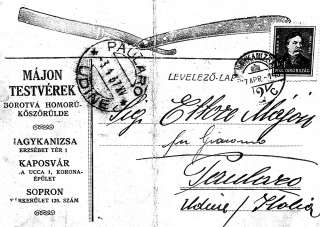 MÁJON
TESTVÉREK
BOROTVA HOMORÚ-
KÖSZÖRÜLDE
NAGYKANIZSA
ERZSÉBET TÉR 1
KAPOSVÁR
A UCCA 1, KORONA-
ÉPÜLET
SOPRON
VÁRKERÜLET 125. SZÁM
PALUZZA
UDINE
LEVELEZŐ-LAP
MAGYARORSZÁG
Sig. Ettore Májon
fu Giacomo
Udine / Itália